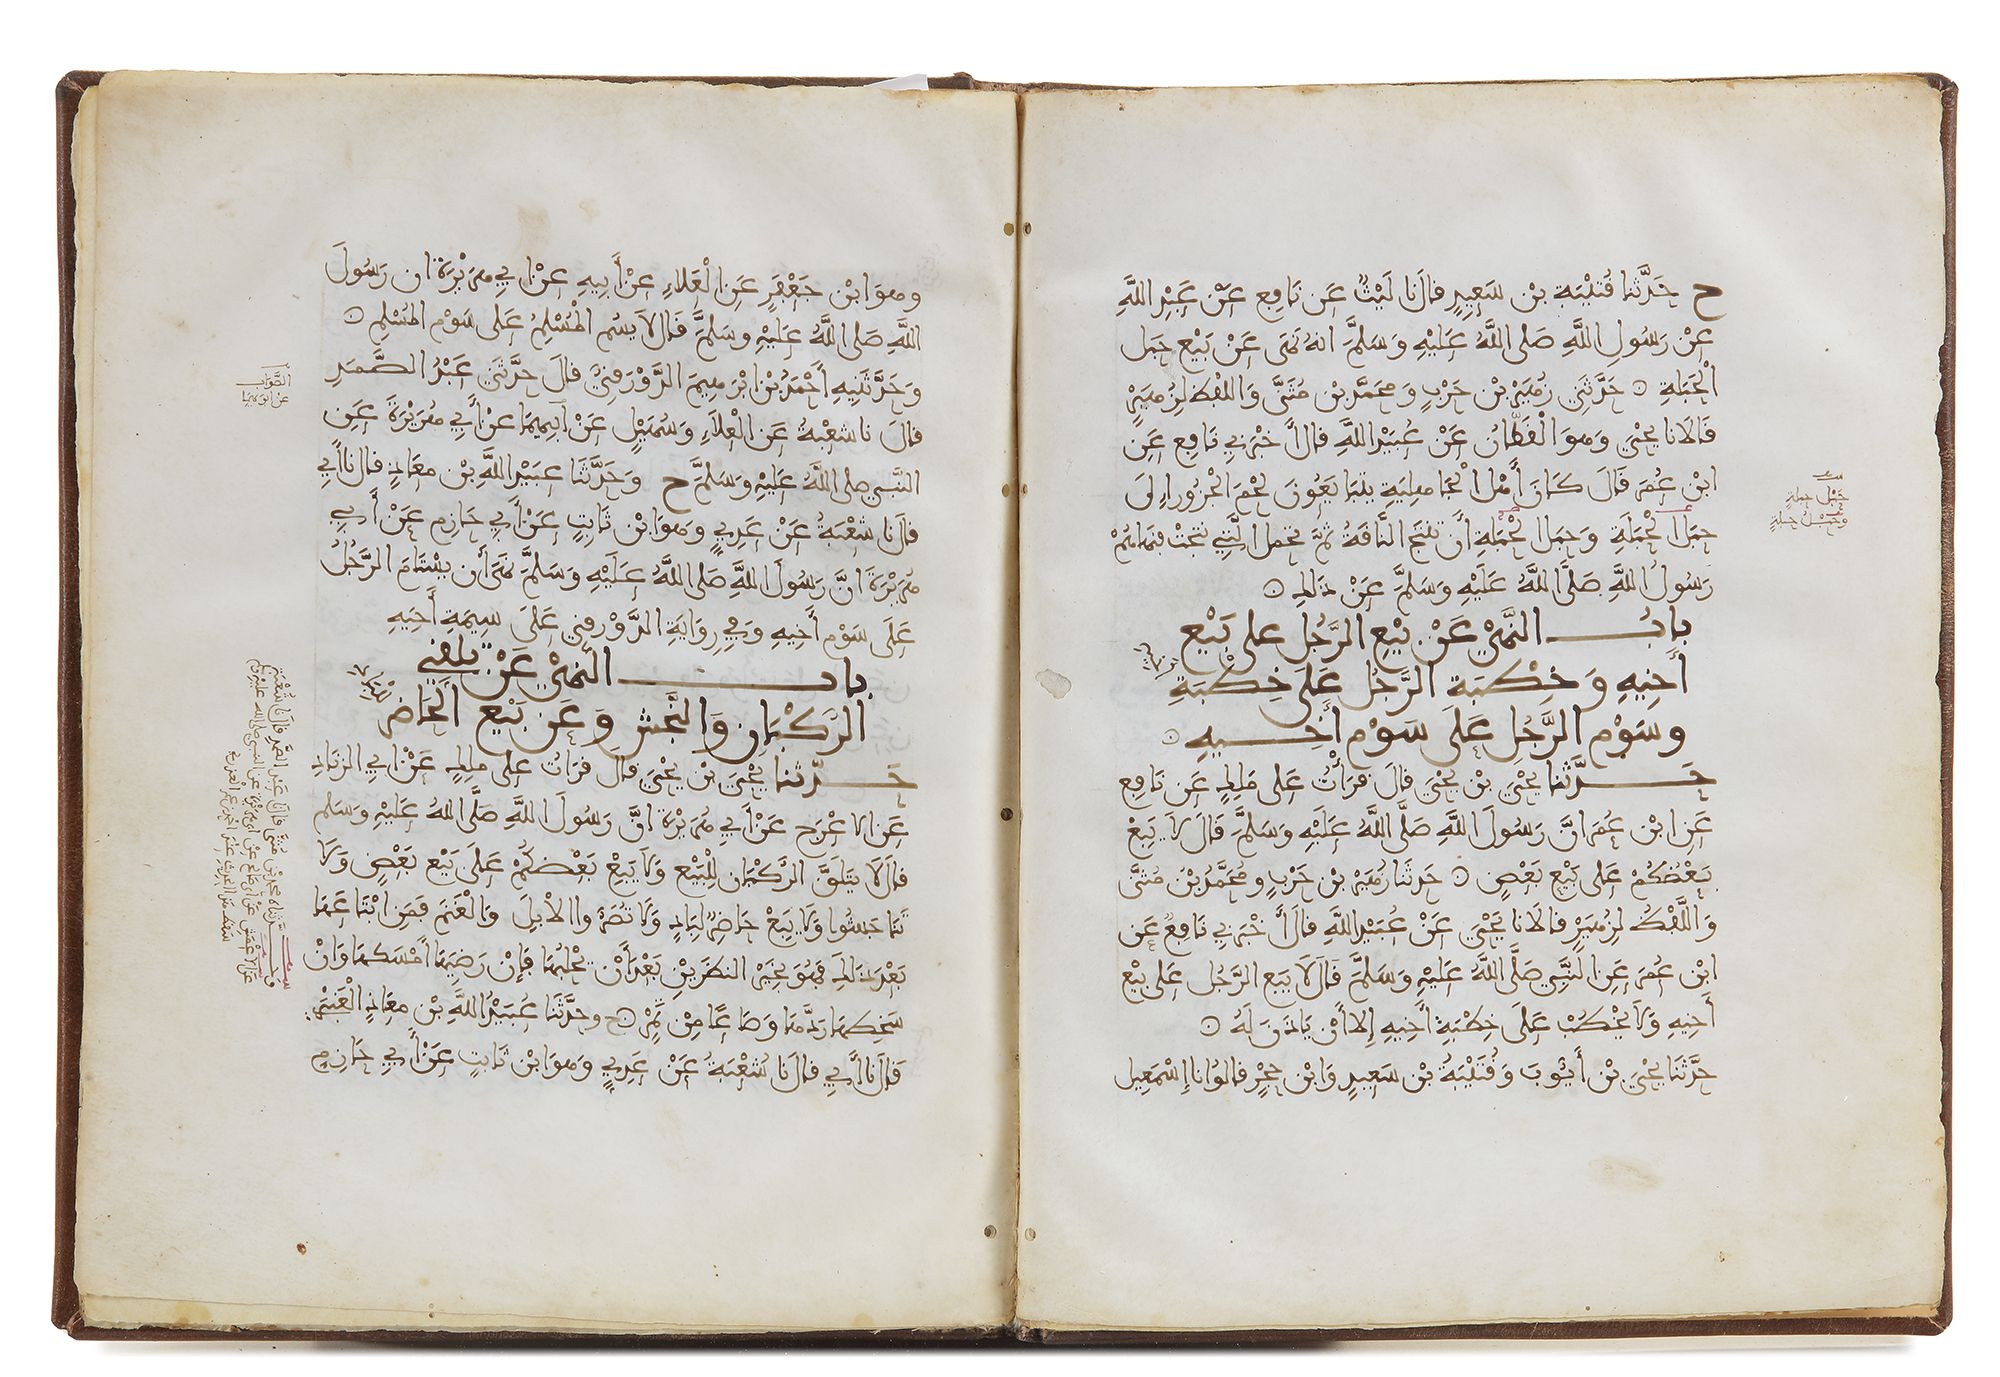 ح حَدَّثنا قُتَيْبَة بْن سَعِيدٍ قال نا لَيْثٌ عَن نَافِع عَنْ عَبْدِ اللَّهِ
عَنْ رَسُولِ اللَّهِ صَلى اللَّهُ عَلَيْهِ وَسَلَّمَ انه نَهَى عَنْ بَيْع حَبَل
الْحَبَلَةِ ۝ حَدَّثَنِي زُهَيْر بْن حَرْبٍ وَمحَمَّد بن مُثَنَّى وَاللَّفْظ لِزُهَيْرٍ
قَالا نا يَحْيَى وَهوَ الْقَطَّانُ عَنْ عُبَيْد اللَّهِ قال أَخْبَرَنِي نَافِع عَنِ
ابْنِ عُمَرَ قَالَ كَانَ أَهْل الْجَاهِلِيَةِ يَتَبَايَعُونَ لَحْمَ الْجَزُورِ إِلَى
حَبَلِ الْحَبَلَةِ وَحَبَل الْحَبَلَةِ أنْ تنْتَج النَّاقَةُ ثُمَّ تَحْمِل الَّتِي نُتِجَتْ فَنَهَاهُمْ
رَسُولُ اللَّهِ صَلَّى اللَّهُ عَلَيْهِ وَسَلَّمَ عَنْ ذَلِكَ ۝
بابُ النَّهْيِ عَنْ بَيْعِ الرَّجُل على بَيْع
أَخِيهِ وَخِطْبَة الرَّجُل عَلَى خِطْبَةِ
وسَوْم الرَّجُلِ عَلَى سَوْم أَخِيهِ ۝
حَدَّثَنا يَحْيَى بْن يَحْيَى قالَ قرَأْتُ عَلى مَالِكٍ عَن نَافِع
عَنِ ابْن عُمَرَ انَّ رَسُولَ اللَّهِ صَلَّى اللَّهُ عَلَيْهِ وَسَلَّمَ قَالَ لَا يَبِعْ
بَعْضُكُمْ عَلَى بَيْع بَعْضٍ ۝ حَدثَنا زُهَيْر بْن حَرْبٍ ومُحَمَّدُ بْن مُثَنَّى
وَاللَّفْظ لِزُهَيْرٍ قَالَا نا يَحْيَى عَنْ عُبَيْدِ اللَّهِ قالَ أَخْبَرَنِي نَافِعٌ عَن
ابْن عُمَرَ عَنِ النَّبِيِّ صَلَّى اللَّهُ عَلَيْهِ وَسَلَّمَ قَالَ لَا يَبِع الرَّجُل عَلَى بَيْع
أَخِيهِ وَلَا يَخْطُبْ عَلَى خِطْبَةِ أَخِيهِ إِلا أَنْ يَاذَنَ لَهُ ۝
حَدَّثَنَا يَحْيَى بْن أَيُّوبَ وَقُتَيْبَةُ بْن سَعِيدٍ وَابْن حُجْرٍ قالُوا نا إسْمَعِيل
حَبَل حبلة
وحَبْل حبلة
وهوَ ابْن جَعْفَرٍ عَنِ الْعَلَاءِ عَنْ أَبِيهِ عَنْ ابِي هرَيْرَةَ ان رَسُولَ
اللَّهِ صَلى اللَّهُ عَلَيْهِ وسَلَّمَ قَالَ لَا يَسُم الْمُسْلِمُ عَلَى سَوْم الْمُسْلِمِ ۝
وحَدَّثَنِيهِ أَحْمَدُ بْن ابْرَهِيمَ الدَّوْرَقِيُّ قَالَ حَدَّثَنِي عَبْدُ الصَّمَدِ
قالَ نا شعْبَةُ عَنِ الْعَلَاءِ وَسُهَيْلٍ عَنْ أَبِيهِمَا عَنْ أَبِي هُرَيْرَةَ عَنِ
النَّبِيِّ صلى اللَّهُ عَلَيْهِ وَسَلَّمَ ح وحَدَّثَنَا عبَيْد اللَّهِ بْن معَاذٍ قَالَ نا أَبِي
قالَ نا شعْبَةُ عَنْ عَدِيٍّ وهوَ ابْن ثَابِتٍ عَنْ أَبِي حَازِم عَنْ أَبِي
هُرَيْرَةَ انَّ رَسُولَ اللَّهِ صَلى اللَّهُ عَلَيْهِ وَسَلَّمَ نَهَى أَن يَسْتَامَ الرَّجُلُ
عَلَى سَوْم أَخِيهِ وَفِي رِوَايَةِ الدَّوْرَقِي عَلَى سِيمَةِ أَخِيهِ
بابُ النَّهْيِ عَنْ تلَقِّي
الرُّكْبَان وَالنَّجْشِ وَعَن بَيْع الحَاضر
حَدَّثَنَا يَحْيَى بْن يَحْيَى قَالَ قَرَأتُ عَلى مَالِكٍ عَنْ ابِي الزنَادِ
عَنِ الاعْرَجِ عَنْ أَبِي هُرَيْرَةَ انَّ رَسُولَ اللَّهِ صَلَّى اللهُ عَلَيْهِ وَسَلم
قَالَ لَا يتَلَقَّ الرُّكْبَان لِلْبَيْع وَلَا يَبِعْ بَعْضكُمْ عَلَى بَيْع بَعْضٍ وَلَا
تَنَاجَشُوا وَلَا يَبِعْ حَاضِرٌ لِبَادٍ وَلَا تُصَرُّوا الْابِلَ وَالْغَنَمَ فَمَنِ ابْتَاعَهَا
بَعْدَ ذَلِكَ فَهُوَ بِخَيْرِ النظرَيْنِ بَعْدَ أَنْ يَحْلُبَهَا فَإِنْ رَضِيَهَا أَمْسَكَهَا وَانْ
سَخِطَهَا رَدَّهَا وَصَاعًا مِنْ تَمْرٍ ۝ ح وحَدَّثَنَا عُبَيْدُ اللَّهِ بْن معَاذٍ الْعَنْبَرِي
قَالَ نا أَبِي قالَ نا شُعْبَةُ عَنْ عَدِيٍّ وَهوَ ابْن ثَابِتٍ عَنْ أَبِي حَازِمٍ
الصَّوَاب
عن ابويهما